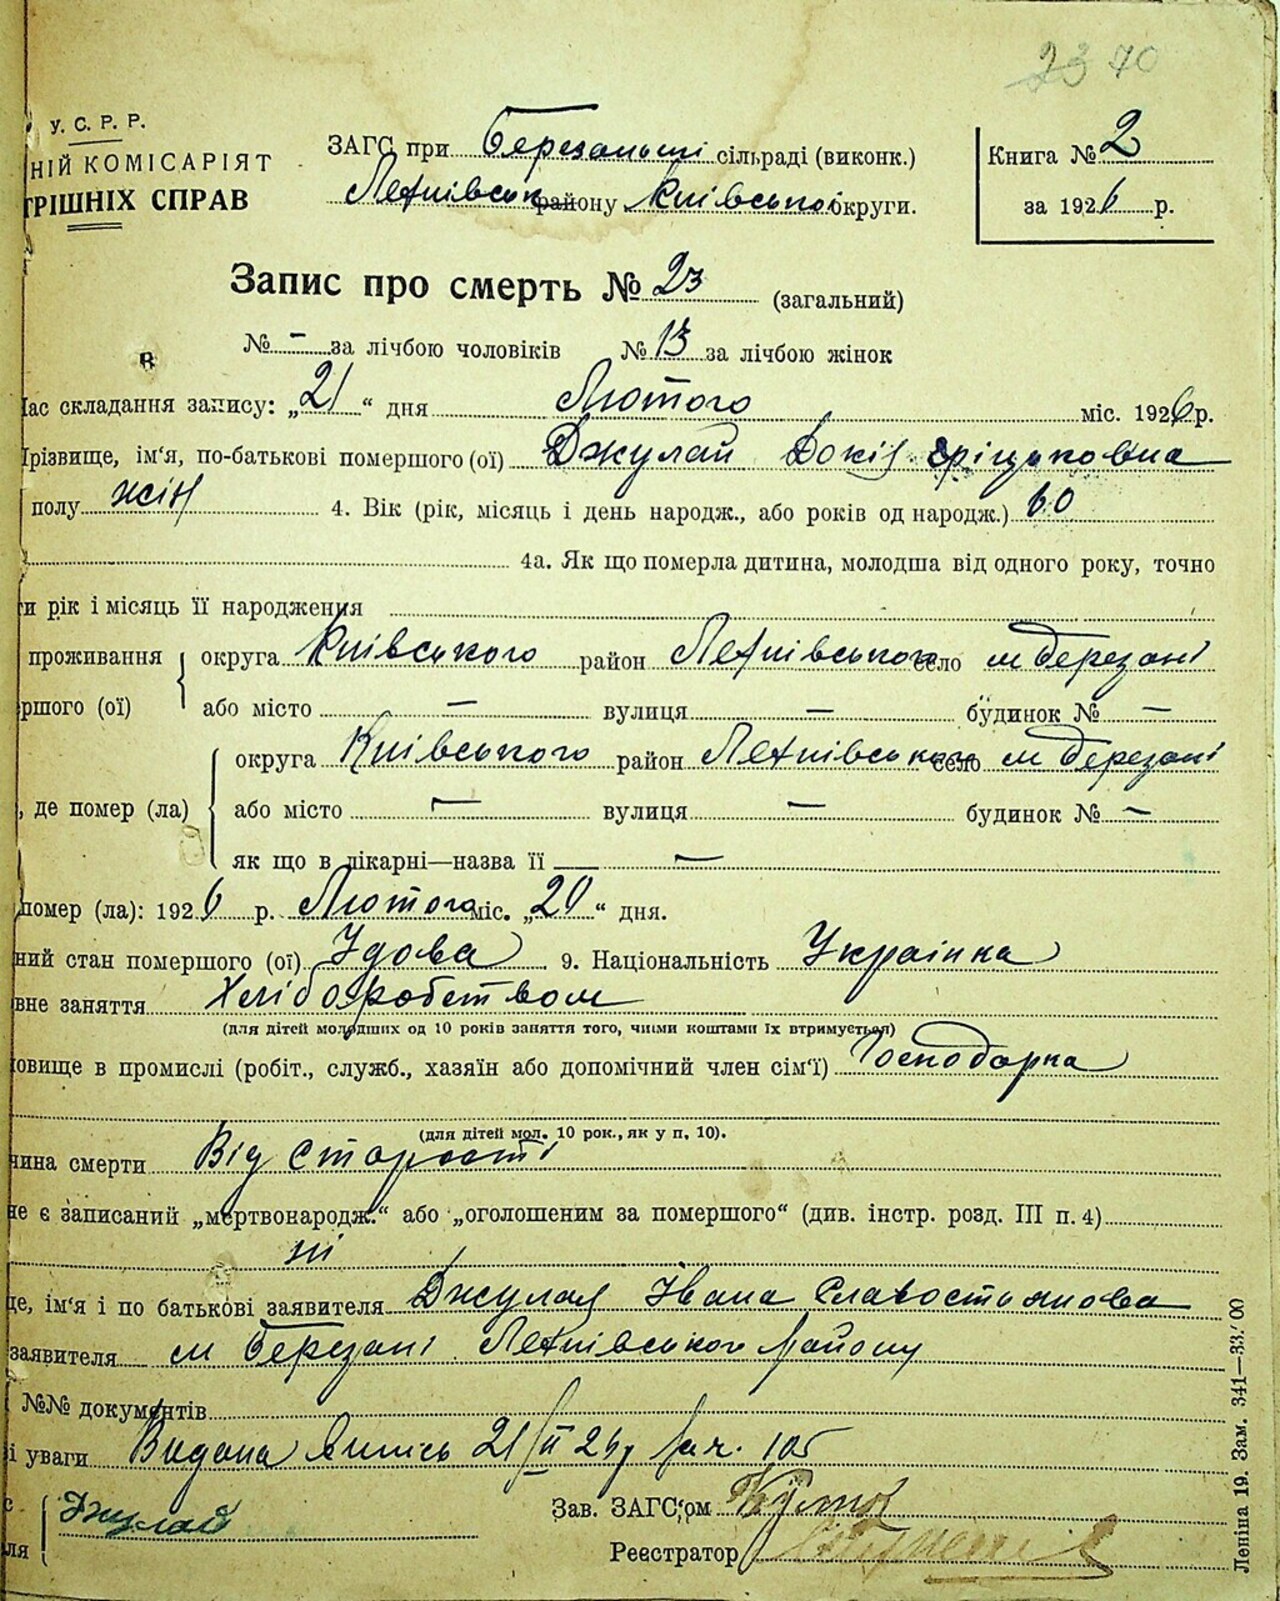 23 70
У. С. Р. Р.
НІЙ КОМІСАРІЯТ
ТРІШНІХ СПРАВ
ЗАГС при Березанськ сільраді (виконк.)
району Київської округи.
Книга № 2
за 1926 р.
Запис про смерть № 23 (загальний)
№ – за лічбою чоловіків № 13 за лічбою жінок
в
Час складання запису: „21“ дня Лютого міс. 1926 р.
Прізвище, ім'я, по-батькові помершого (ої) Джулай Докія Гріцьковна
полу жін 4. Вік (рік, місяць і день народж., або років од народж.) 60
4а. Як що померла дитина, молодша від одного року, точно
ти рік і місяць її народження
проживання округа Київського район село м Березані
ршого (ої) або місто — вулиця — будинок № —
округа Київського район село м Березані
, де помер (ла) або місто — вулиця — будинок № —
як що в лікарні—назва її —
помер (ла): 1926 р. Лютого міс. „20“ дня.
ний стан помершого (ої) Удова 9. Національність Українка
вне заняття Хліборобством
(для дітей молодших од 10 років заняття того, чиїми коштами їх втримується)
овище в промислі (робіт., служб., хазяїн або допомічний член сім'ї) Господарка
(для дітей мол. 10 рок., як у п. 10).
чина смерти Від старості
не є записаний „мертвонародж.“ або „оголошеним за помершого“ (див. інстр. розд. III п. 4)
ні
ще, ім'я і по батькові заявителя Джулая Івана
заявителя м Березані району
№№ документів
і уваги Видана Випись 21/II 26 р за ч. 105
с Джулай
Зав. ЗАГС'ом
ля
Реєстратор
Леніна 19. Зам. 341—33.